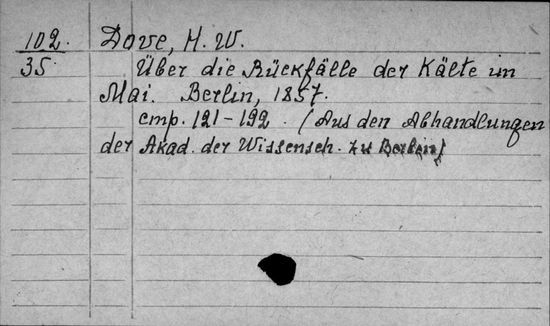 102. Dove, H. W.
35 Über die Rückfälle der Kälte im
Mai. Berlin, 1857.
cmp. 121-192. (Aus den Abhandlungen
der Akad. der Wissensch. zu Berlin)